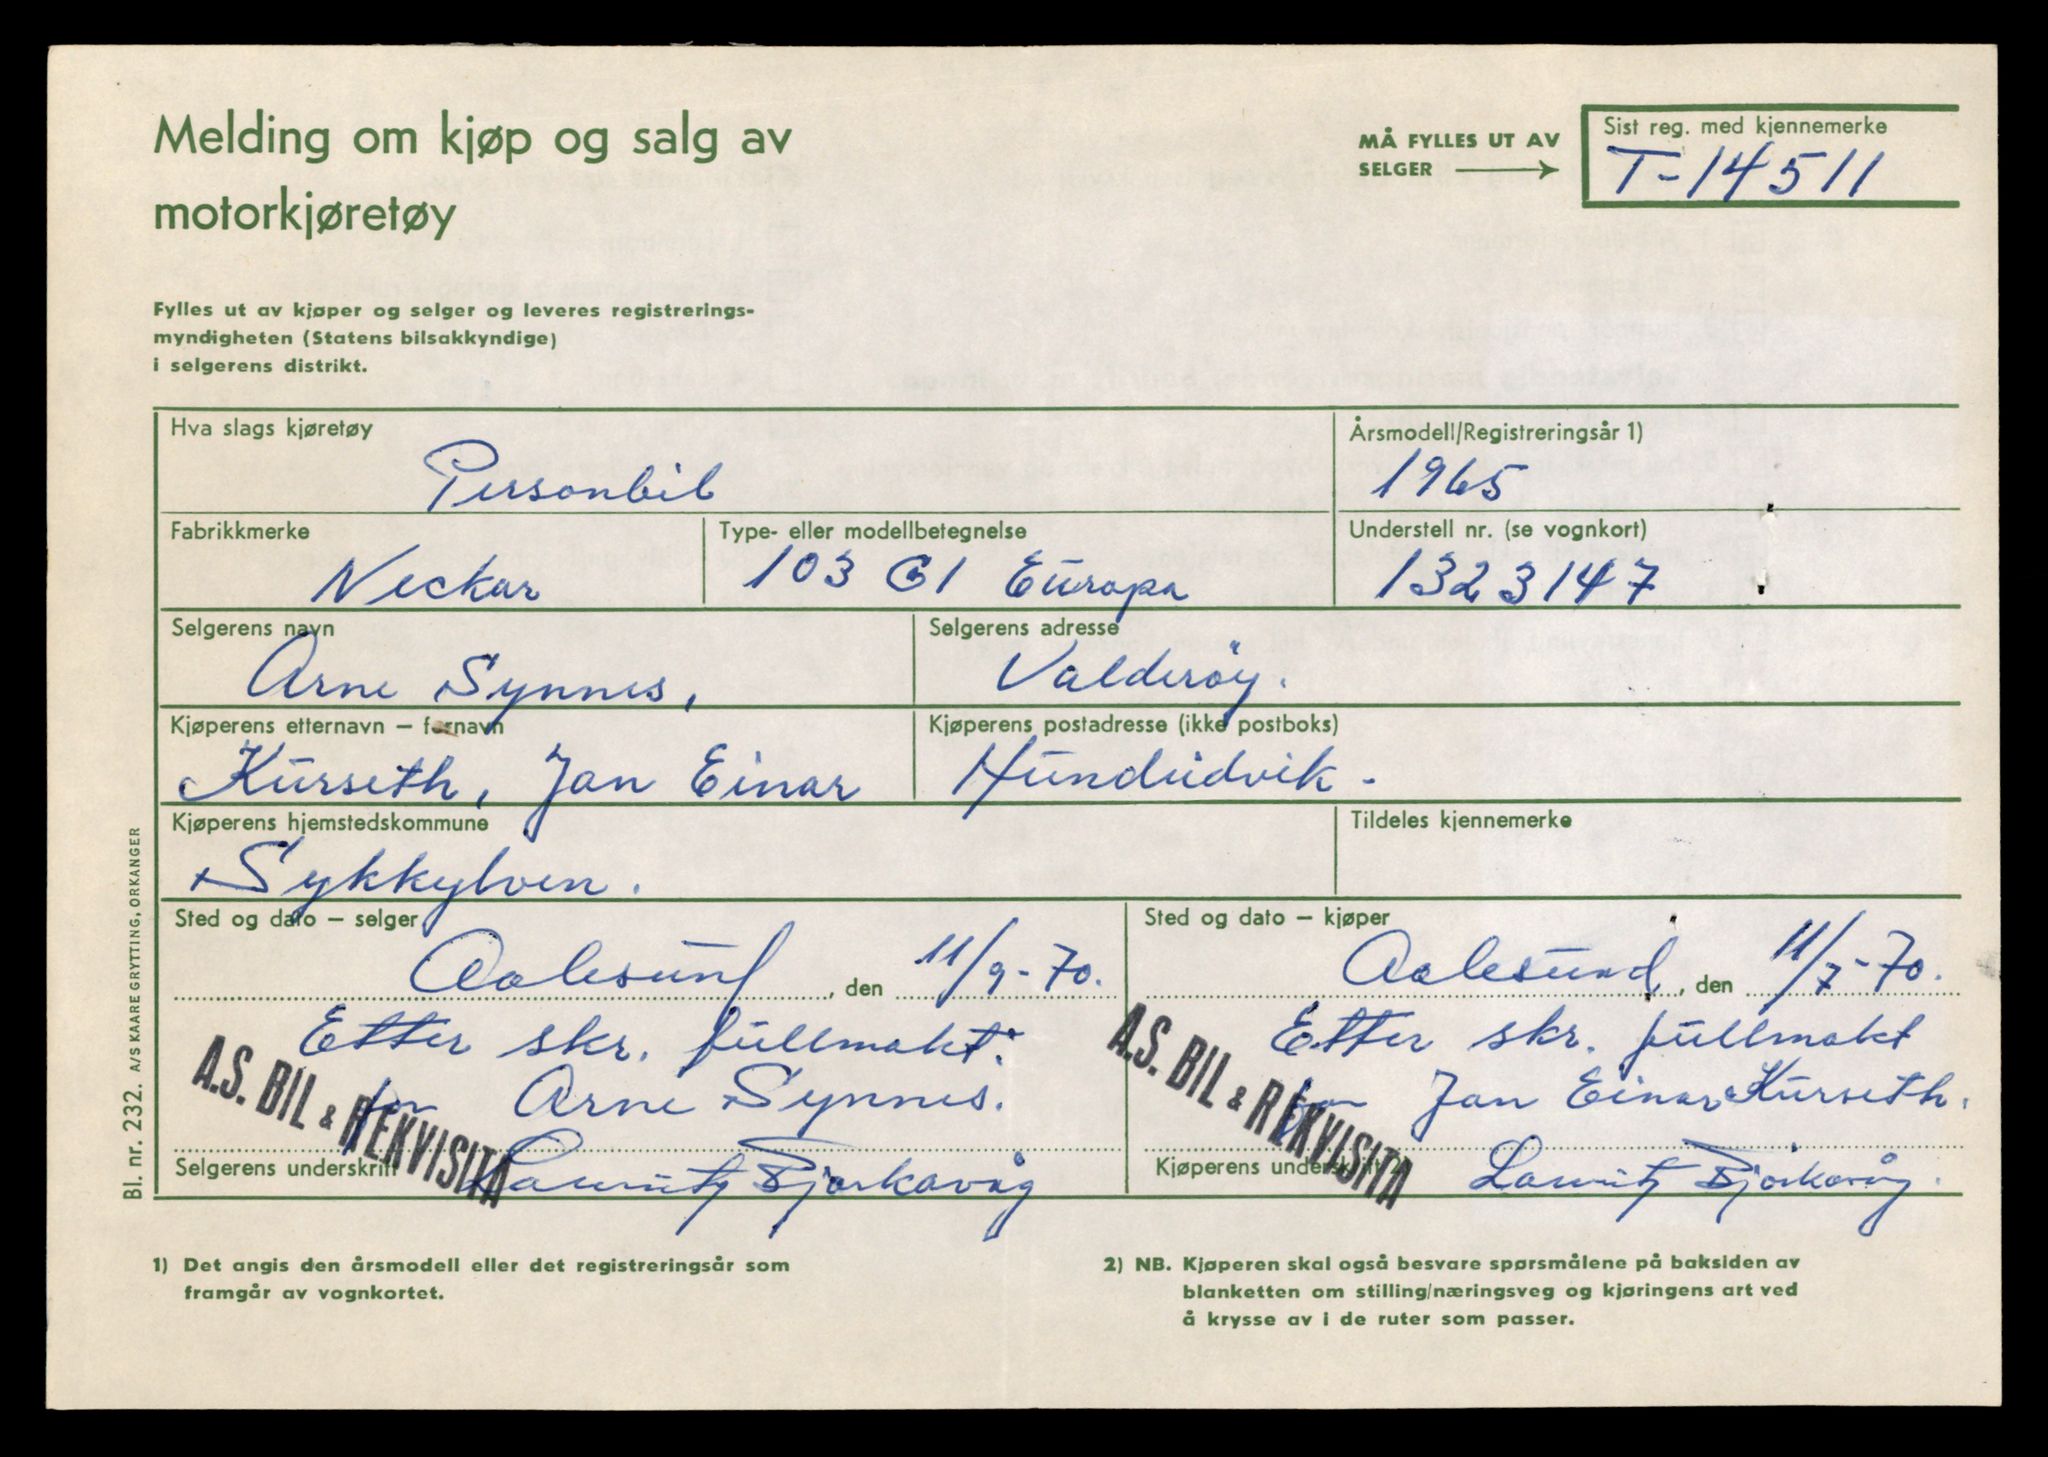 Melding om kjøp og salg av
motorkjøretøy
MÅ FYLLES UT AV
SELGER
Sist reg. med kjennemerke
T-14511
Fylles ut av kjøper og selger og leveres registrerings-
myndigheten (Statens bilsakkyndige)
i selgerens distrikt.
Hva slags kjøretøy
Personbil
Årsmodell/Registreringsår 1)
1965
Fabrikkmerke
Neckar
Type- eller modellbetegnelse
103 G1 Europa
Understell nr. (se vognkort)
1323147
Selgerens navn
Arne Synnes,
Selgerens adresse
Valderöy.
Kjøperens etternavn – fornavn
Kurseth, Jan Einar
Kjøperens postadresse (ikke postboks)
Hundeidvik -
Kjøperens hjemstedskommune
Sykkylven.
Tildeles kjennemerke
Sted og dato – selger
Aalesund, den 11/9-70.
Etter skr. fullmakt.
for Arne Synnes.
A.S. BIL & REKVISITA
Selgerens underskrift
Lauritz Bjørkavåg
Sted og dato – kjøper
Aalesund, den 11/7-70.
Etter skr. fullmakt
for Jan Einar Kurseth.
A.S. BIL & REKVISITA
Kjøperens underskrift 2)
Lauritz Bjørkavåg.
Bl. nr. 232. A/S KAARE GRYTTING, ORKANGER
1) Det angis den årsmodell eller det registreringsår som
framgår av vognkortet.
2) NB. Kjøperen skal også besvare spørsmålene på baksiden av
blanketten om stilling/næringsveg og kjøringens art ved
å krysse av i de ruter som passer.